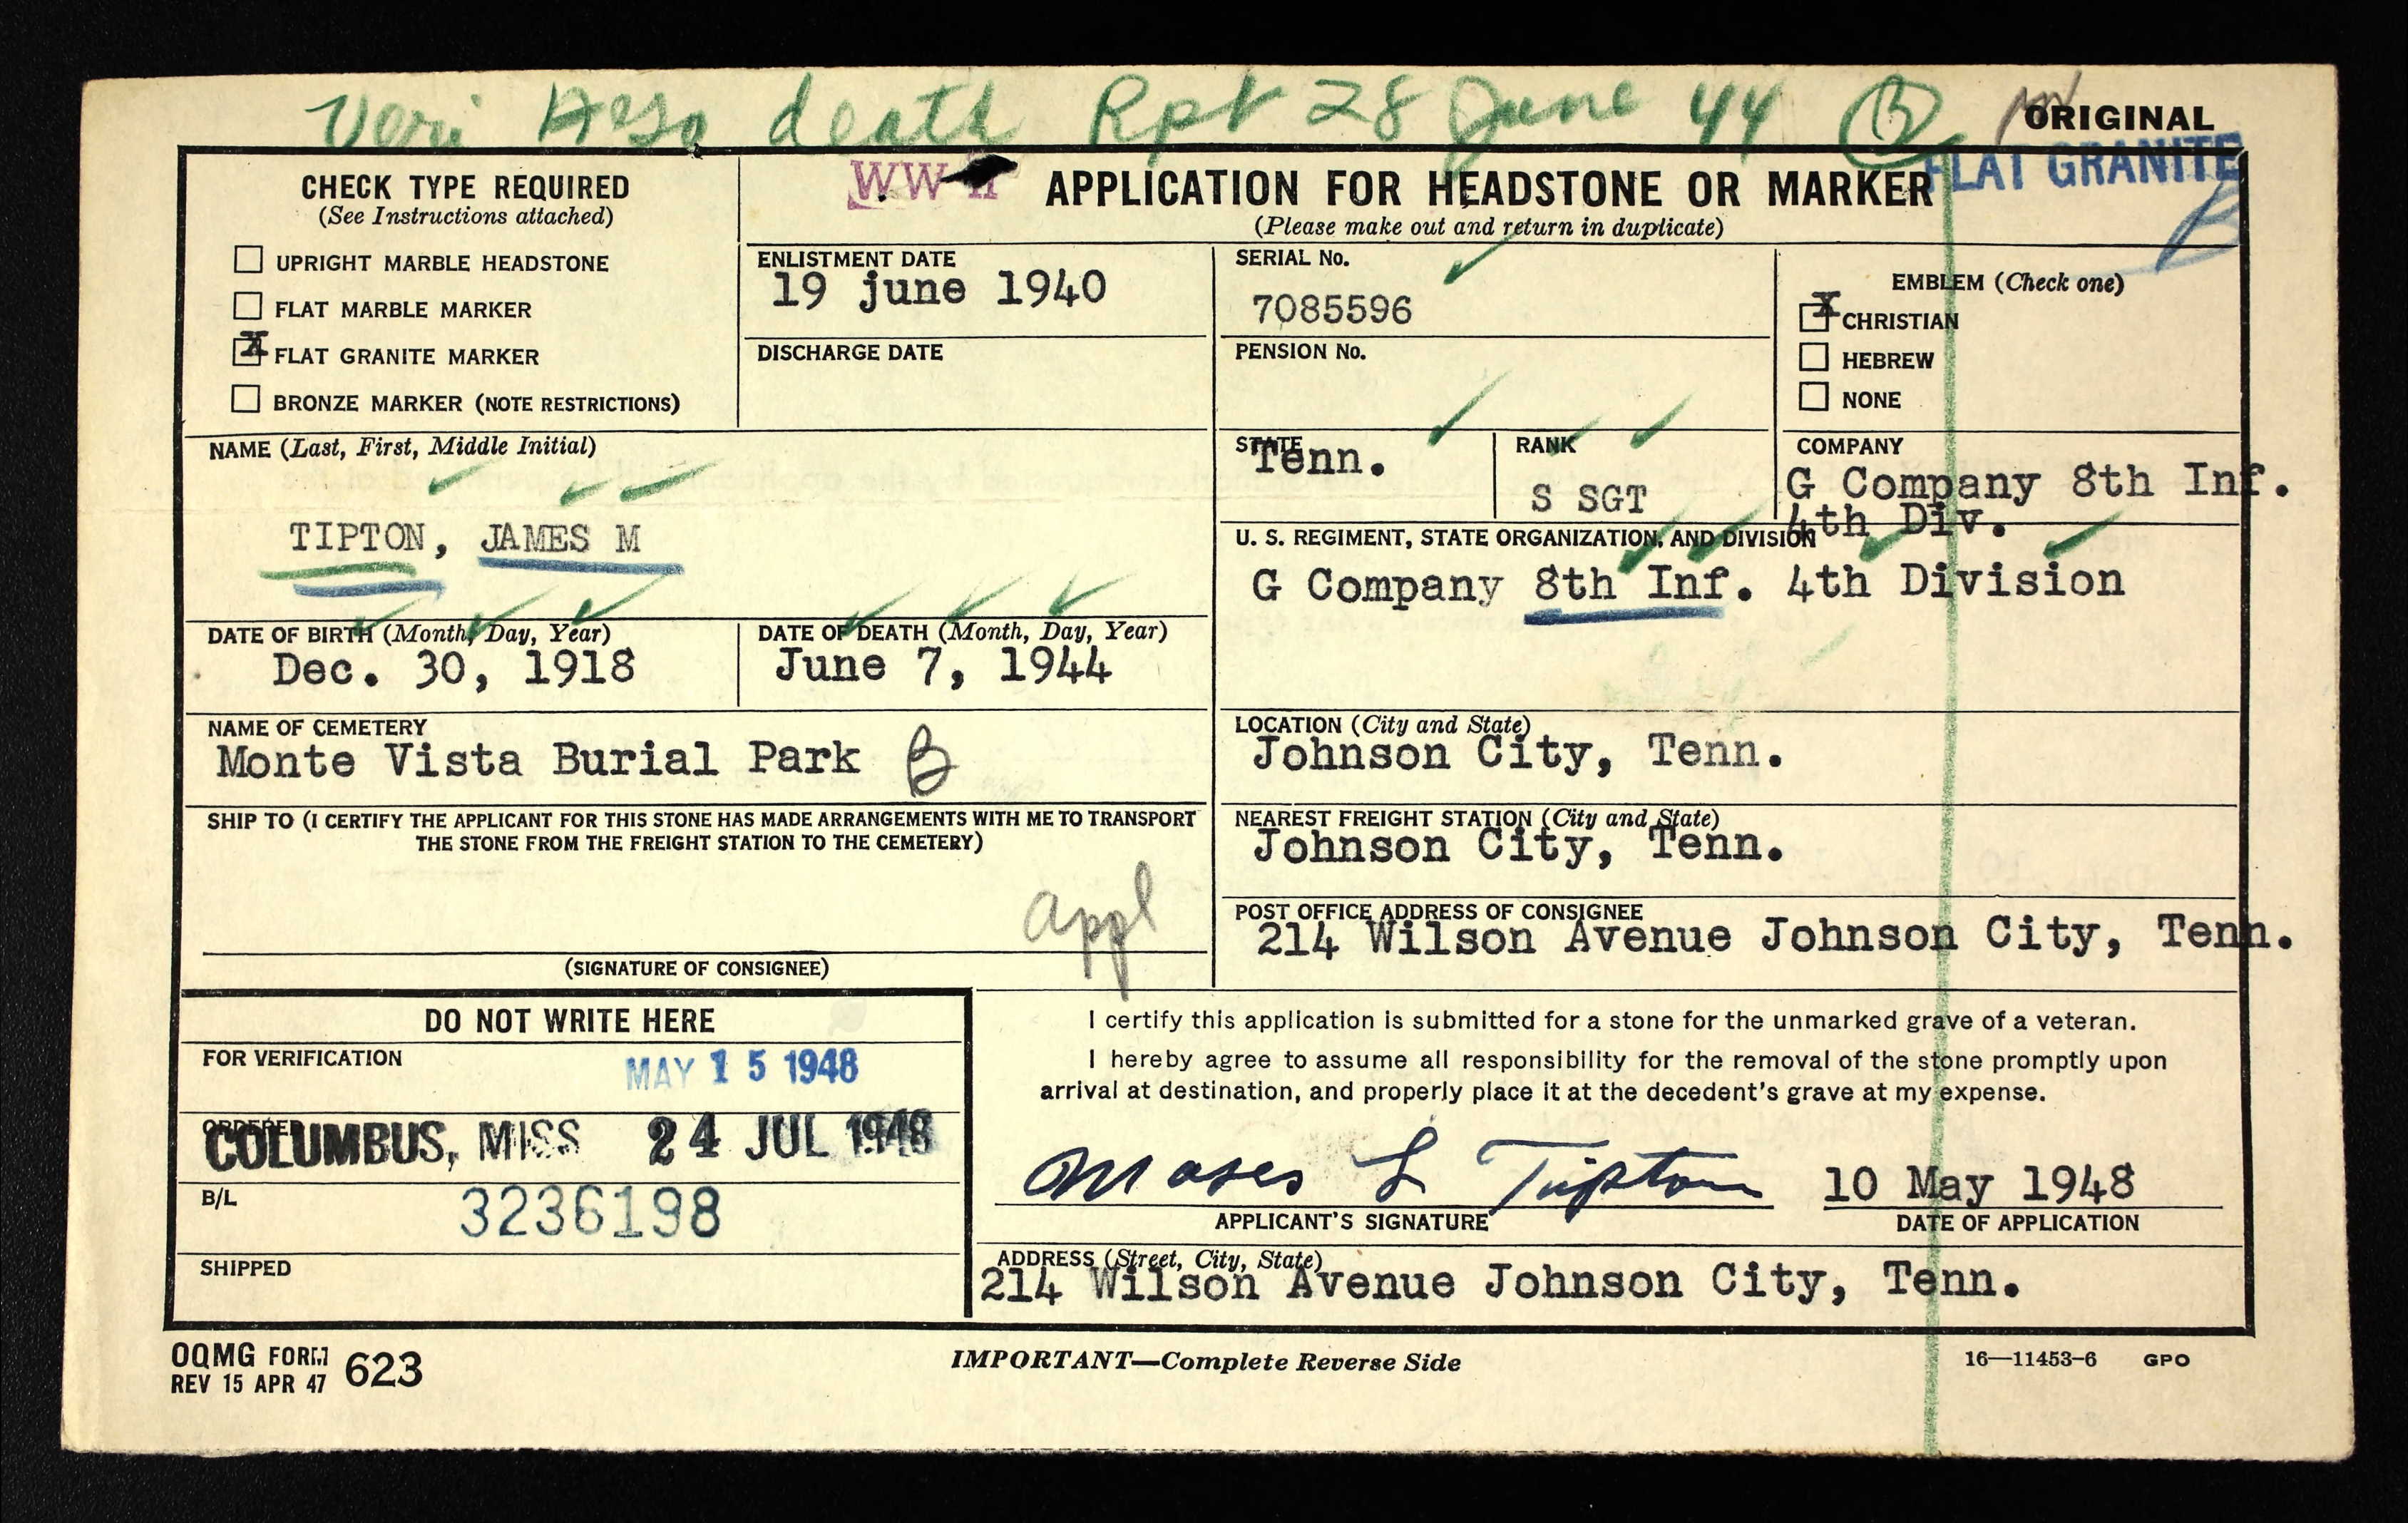 Veri death Rpt 28 June 44 B
ORIGINAL
FLAT GRANITE
CHECK TYPE REQUIRED
(See Instructions attached)
UPRIGHT MARBLE HEADSTONE
FLAT MARBLE MARKER
X FLAT GRANITE MARKER
BRONZE MARKER (NOTE RESTRICTIONS)
WW II
APPLICATION FOR HEADSTONE OR MARKER
(Please make out and return in duplicate)
ENLISTMENT DATE
19 june 1940
DISCHARGE DATE
SERIAL No.
7085596
PENSION No.
EMBLEM (Check one)
X CHRISTIAN
HEBREW
NONE
NAME (Last, First, Middle Initial)
TIPTON, JAMES M
STATE
Tenn.
RANK
S SGT
COMPANY
G Company 8th Inf.
4th Div.
U. S. REGIMENT, STATE ORGANIZATION, AND DIVISION
G Company 8th Inf. 4th Division
DATE OF BIRTH (Month, Day, Year)
Dec. 30, 1918
DATE OF DEATH (Month, Day, Year)
June 7, 1944
NAME OF CEMETERY
Monte Vista Burial Park B
LOCATION (City and State)
Johnson City, Tenn.
SHIP TO (I CERTIFY THE APPLICANT FOR THIS STONE HAS MADE ARRANGEMENTS WITH ME TO TRANSPORT
THE STONE FROM THE FREIGHT STATION TO THE CEMETERY)
appl
(SIGNATURE OF CONSIGNEE)
NEAREST FREIGHT STATION (City and State)
Johnson City, Tenn.
POST OFFICE ADDRESS OF CONSIGNEE
214 Wilson Avenue Johnson City, Tenn.
DO NOT WRITE HERE
FOR VERIFICATION
MAY 15 1948
ORDERED
COLUMBUS, MISS 24 JUL 1948
B/L
3236198
SHIPPED
I certify this application is submitted for a stone for the unmarked grave of a veteran.
I hereby agree to assume all responsibility for the removal of the stone promptly upon
arrival at destination, and properly place it at the decedent's grave at my expense.
Moses L Tipton
10 May 1948
APPLICANT'S SIGNATURE
DATE OF APPLICATION
ADDRESS (Street, City, State)
214 Wilson Avenue Johnson City, Tenn.
OQMG FORM 623
REV 15 APR 47
IMPORTANT—Complete Reverse Side
16—11453-6 GPO